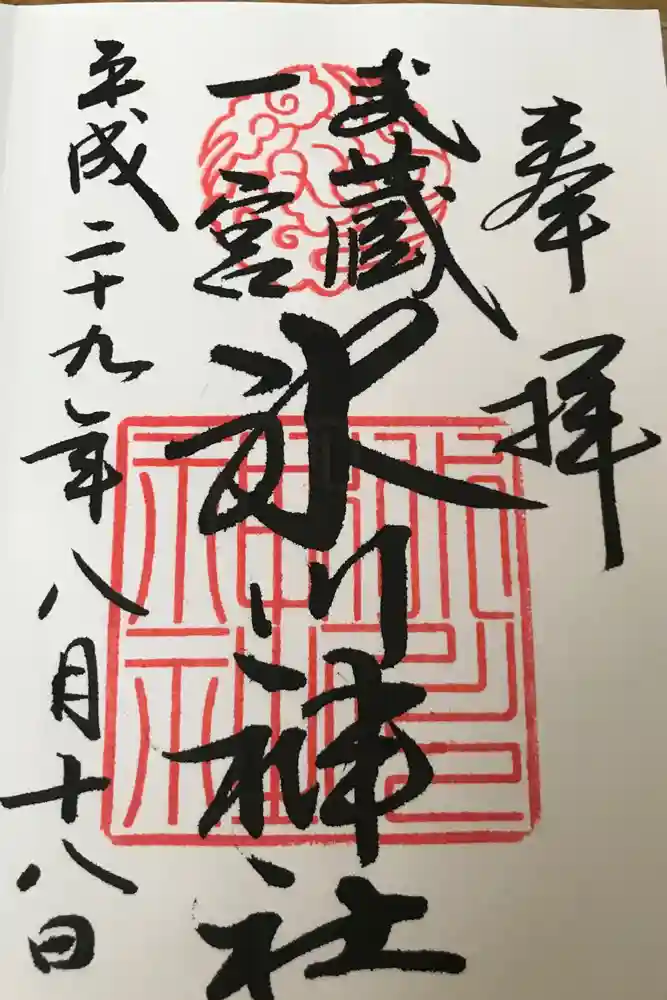 奉拝
武蔵
一宮
氷川神社
平成二十九年八月十八日